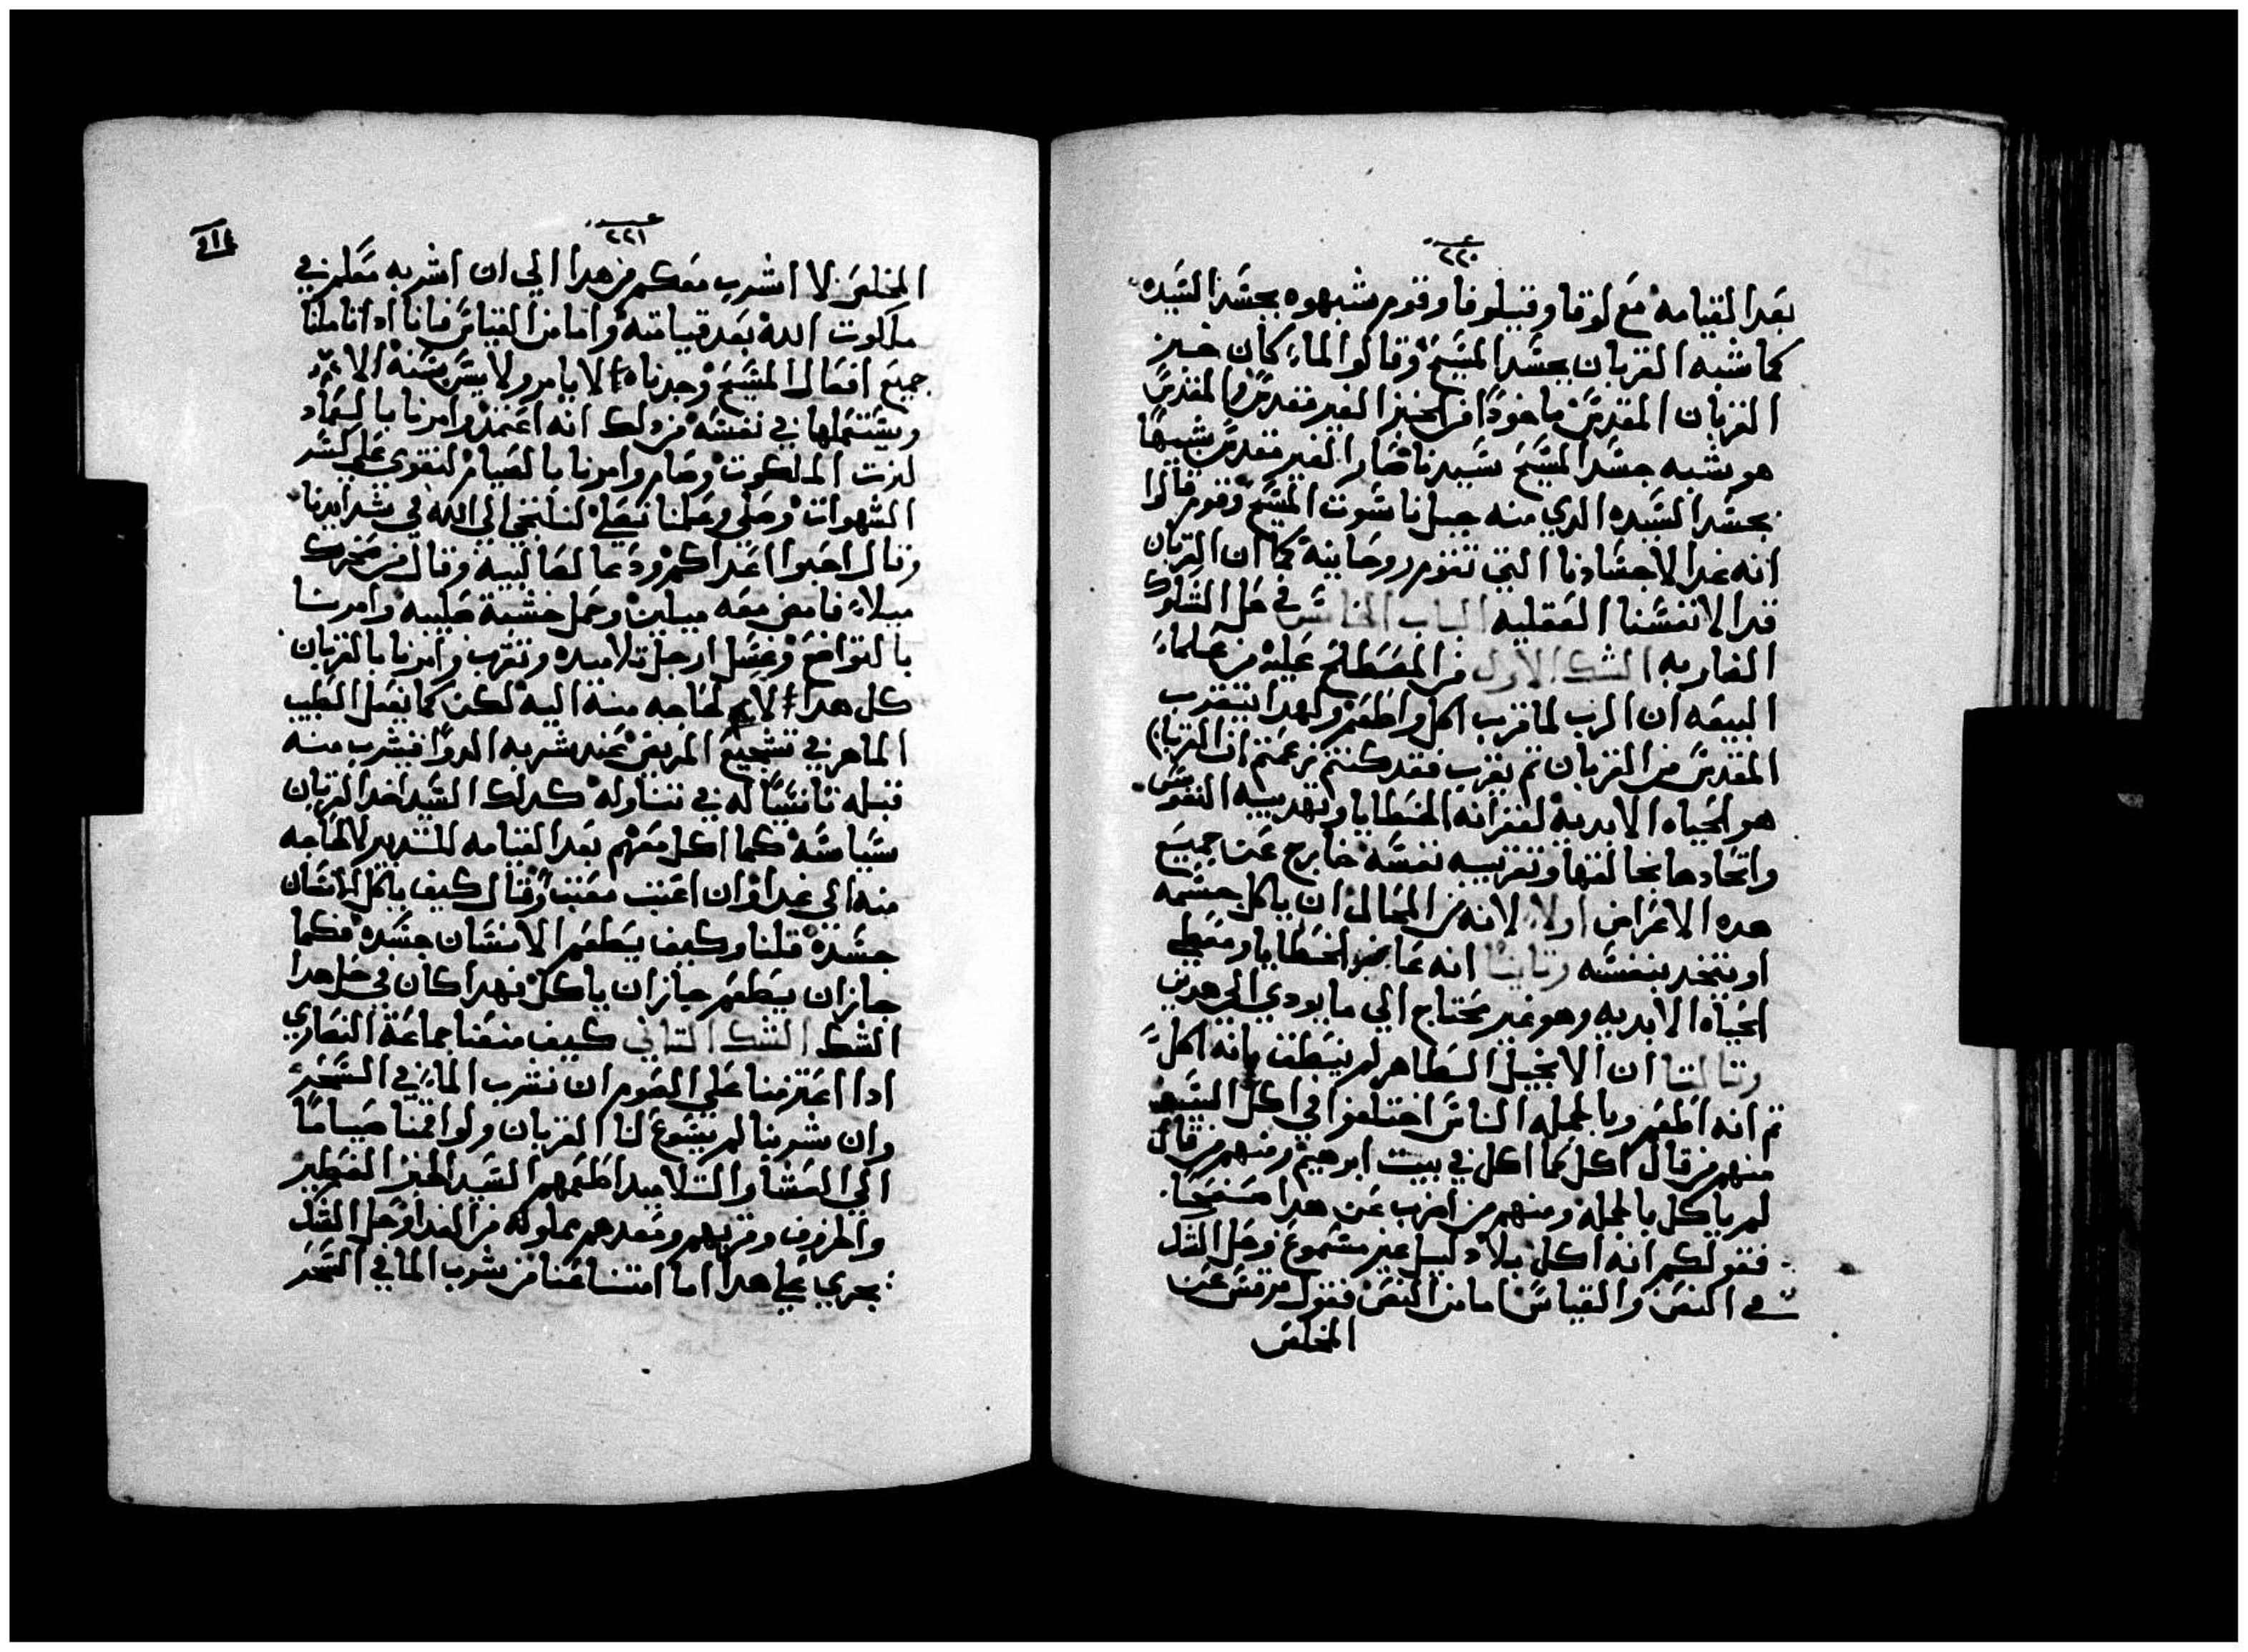 ٢٢٠
بعد القيامه مع لوقا وقيلوفا وقوم شبهوه بجسد السيده
كما شبه القربان بجسد المسيح وقالوا لما كان خبز
القربان المقدس ماخودا من الخبز الغير مقدس والمقدس
هو شبه جسد المسيح سيدنا صار الغير مقدس شبيها
بجسد السيده الدي منه جبل ناسوت المسيح وقوم قالوا
انه غدا لاجسادنا التي تقوم روحانية كما ان القربان
غدا لانفسنا العقليه الباب الخامس في حل الشكوك
الضاربه الشك الاول من المصطلح عليه من علماء
البيعه ان الرب لما قرب اكل واطعم ولهدا يتقرب
المقدس من القربان تم يقرب فقد كنتم زعمتم ان القربان
هو الحياه الابدية لغفرانه الخطايا وتهديبه النفوس
واتحادها بخالقها وتقريبه نفسه خارج عن جميع
هده الاغراض اولا لانه من المحال ان ياكل جسمه
او يتحد بنفسه وتانيا انه غافر الخطايا ومعطي
الحياه الابديه وهو غير محتاج الي ما يودي الي هدين
وتالتا ان الانجيل الطاهر لم ينطق بانه اكل
تم انه اطعم وبالجمله الناس اختلفوا في اكل السيد
منهم من قال اكل كما اكل في بيت ابرهيم ومنهم من قال
لم ياكل بالجمله ومنهم من اضرب عن هدا صفحا
فقولكم انه اكل بلا دليل غير مسموع وحل الشك
في النص والقياس اما من النص فقول مرقس عن
المخلص
٢٢١
المخلص لا اشرب معكم من هدا الي ان اشربه معكم في
ملكوت الله بعد قيامته واما من القياس فانا ادا تاملنا
جميع افعال المسيح وجدناه لا يامر ولا يسن سنة الا
ويستعملها في نفسه من دلك انه اعتمد وامرنا بالعماد
لنرت الملكوت وصام وامرنا بالصيام لنقوي علي كسر
الشهوات وصلي وعلمنا نصلي لنلتجي الي الله في شدايدنا
وقال احبوا اعداكم ودعا لصالبيه وقال من سخرك
ميلا فامض معه ميلين وحمل خشبة صليبه وامرنا
بالتواضع وغسل ارجل تلاميده وتقرب وامرنا بالقربان
كل هدا لا لحاجه منه اليه لكن كما يفعل الطبيب
الماهر في تشجيع المريض عند شربه الدوا فيشرب منه
قبله تانيسا له في تناوله كدلك السيد اخد القربان
سياسه كما اكل معهم بعد القيامه للتدبير لا لحاجه
منه الي غدا وان اعنت معنت وقال كيف ياكل الانسان
جسده قلنا وكيف يطعم الانسان جسده فكما
جاز ان يطعم جاز ان ياكل فهدا كان في حل هدا
الشك الشك التاني كيف منعنا جماعة النصاري
ادا اعتزمنا علي الصوم ان نشرب الماء في السحر
وان شربنا لم يسوغ لنا القربان ولو اقمنا صياما
الي العشا والتلاميد اطعمهم السيد الخبز الفطير
والخروف وقربهم ومعدهم مملوله من الغدا وحل الشك
يجري علي هدا اما امتناعنا من شرب الما في السحر